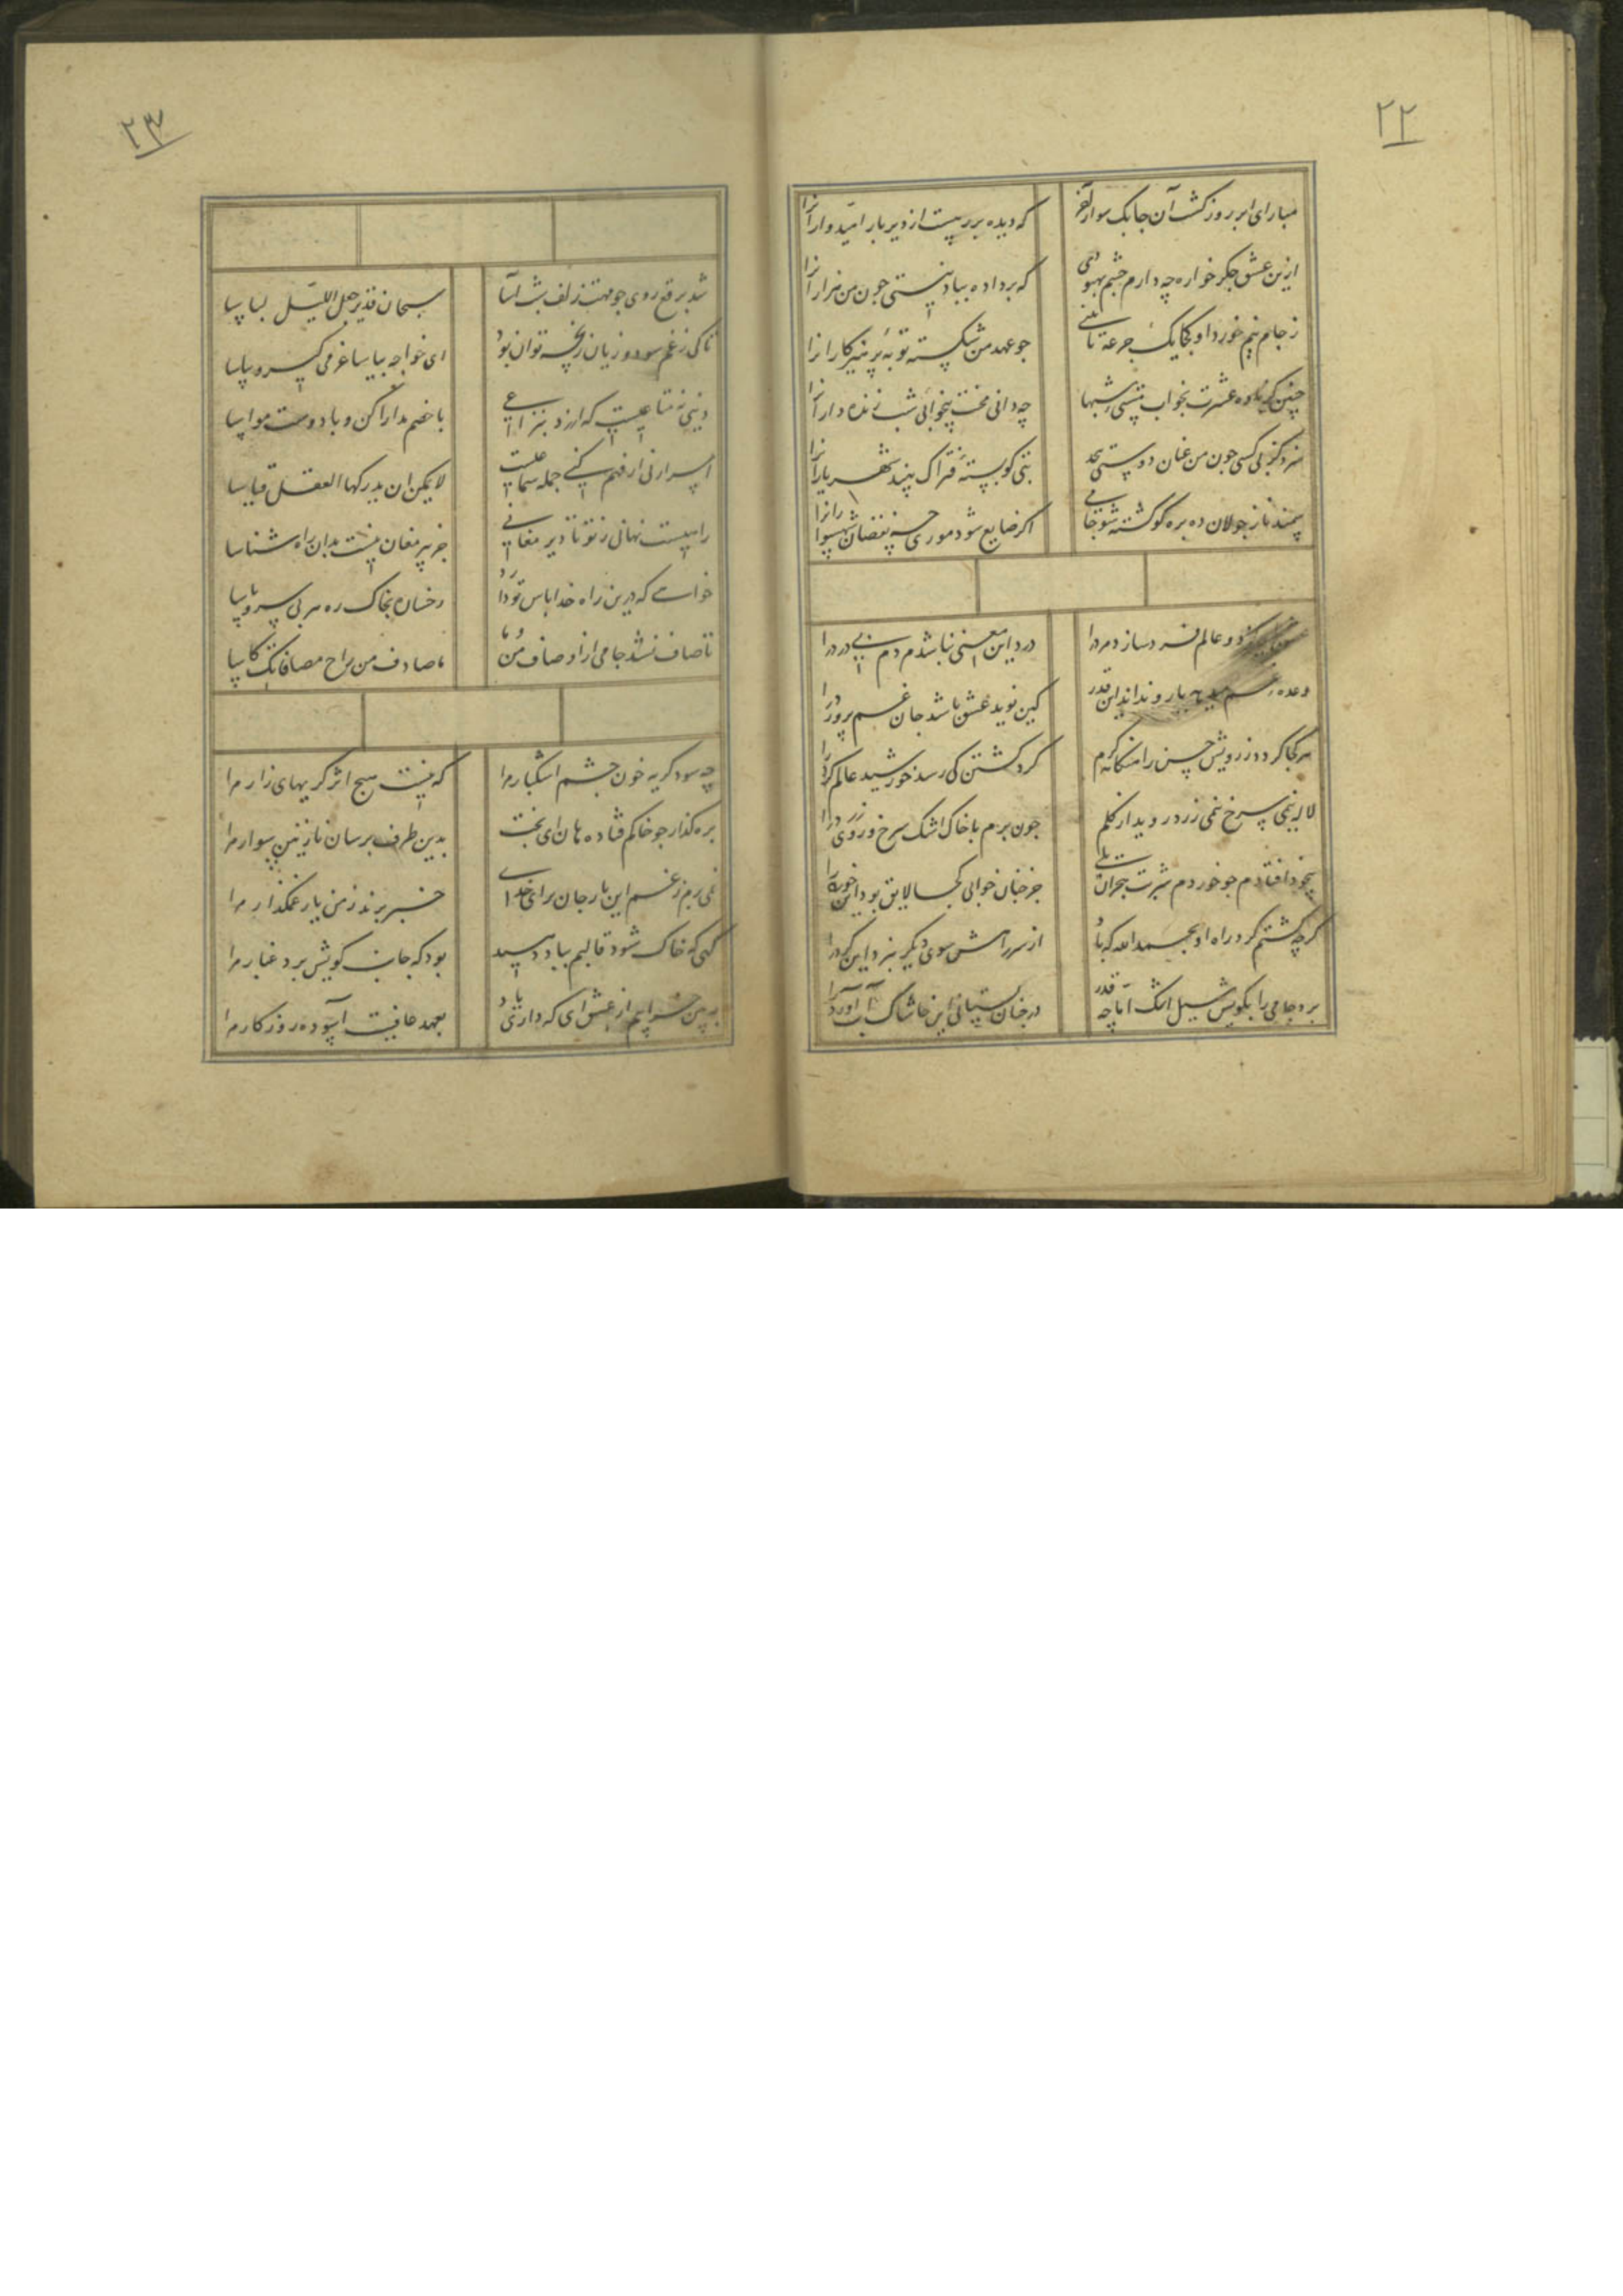 ۲۲
مبار ای ابر بر روز کشت آن چابک سوار آخر
که دیده بر رهست از دیر باز امیدوارانرا
ازین عشق جکر خواره چه دارم چشم بهبودی
که بر داده بباد نیستی جون من هزارانرا
ز جام نیم خورد او کجا یک جرعه تا
جو عهد من شکسته توبهٔ پرهیزکارانرا
چنین کز بادهٔ عشرت بخواب مستی شبها
چه دانی محنت بیخوابی شب زنده دارانرا
سزد کز بی کسی جون من عنان دوستی
بتی کو بستهٔ فتراک بیند شهریارانرا
سمند ناز جولان ده بره کو کشته شو جامی
اکر ضایع شود موری چه نقصان شهسوارانرا
دو عالم فرد سازد مرد را
درد این معنی نباشد مردم بی درد را
وعده یار و نداند این قدر
کین نوید عشق باشد جان غم پرورد را
هر کجا کردد ز رویش حسن را هنکامه کرم
کرد کشتن کی رسد خورشید عالم کرد را
لاله نمی سرخ نمی زرد روید از کلم
جون برم با خاک اشک سرخ و روی زرد را
بیخود افتادم جو خوردم شربت هجران
جز جنان خوابی کجا لایق بود این خورد را
کرچه کشتم کرد راه او بحمد الله که باد
از سر راهش سوی دیکر نبرد این کرد را
برد جامی را بکویش سیل اشک اما چه قدر
در جنان بستانی این خاشاک آب آورد را
۲۳
شد برقع روی جو مهت زلف شب آسا
سبحان قدیر جعل اللیل لباسا
تا کی ز غم سود و زیان رنجه توان بود
ای خواجه بیا ساغر می کیر و بیاسا
دینی نه متاعیست که ارزد بنزاعی
با خصم مدارا کن و با دوست مواسا
اسرار نی ار فهم کنی جمله سماعیست
لا یمکن ان یدرکها العقل قیاسا
راهیست نهانی ز تو تا دیر مغانی
جز پیر مغان نیست بدان راه شناسا
خواهی که درین راه خدا پاس تو دارد
رخساره بخاک ره هر بی سر و پا سا
تا صاف نشد جامی از اوصاف من و ما
ما صادف من راح مصافاتک کاسا
چه سود کریه خون چشم اشکبار مرا
که نیست هیچ اثر کریهای زار مرا
بره کذار جو خاکم فتاده هان ای بخت
بدین طرف برسان نازنین سوار مرا
نمی رهم ز غم این بار جان برای خدای
خبر برند ز من یار غمکسار مرا
کهی که خاک شود قالبم بباد دهید
بود که جانب کویش برد غبار مرا
ببین خرابیم از عشق ای که داری یاد
بعهد عافیت آسوده روزکار مرا